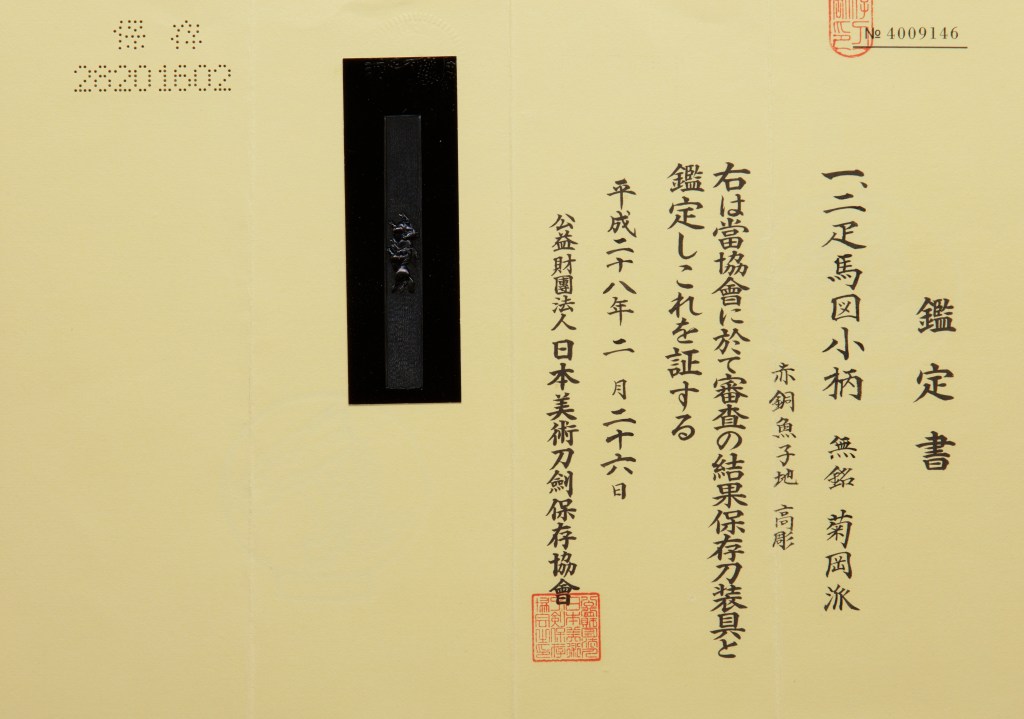 № 4009146
鑑定書
一、二疋馬図小柄 無銘 菊岡派
赤銅魚子地 高彫
右は當協會に於て審査の結果保存刀装具と
鑑定しこれを証する
平成二十八年二月二十六日
公益財團法人 日本美術刀劍保存協會
保存
28201602